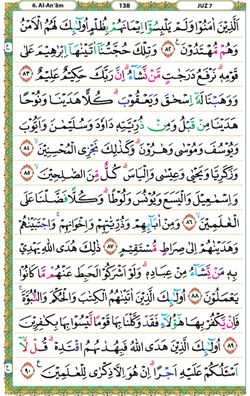 6. Al-An'ām 138 JUZ 7
الَّذِيْنَ اٰمَنُوْا وَلَمْ يَلْبِسُوْٓا اِيْمَانَهُمْ بِظُلْمٍ اُولٰٓئِكَ لَهُمُ الْاَمْنُ
وَهُمْ مُّهْتَدُوْنَ ۝٨٢ وَتِلْكَ حُجَّتُنَآ اٰتَيْنٰهَآ اِبْرٰهِيْمَ عَلٰى
قَوْمِهٖ نَرْفَعُ دَرَجٰتٍ مَّنْ نَّشَآءُ اِنَّ رَبَّكَ حَكِيْمٌ عَلِيْمٌ ۝٨٣
وَوَهَبْنَا لَهٗٓ اِسْحٰقَ وَيَعْقُوْبَ كُلًّا هَدَيْنَا وَنُوْحًا
هَدَيْنَا مِنْ قَبْلُ وَمِنْ ذُرِّيَّتِهٖ دَاوٗدَ وَسُلَيْمٰنَ وَاَيُّوْبَ
وَيُوْسُفَ وَمُوْسٰى وَهٰرُوْنَ وَكَذٰلِكَ نَجْزِى الْمُحْسِنِيْنَ ۝٨٤
وَزَكَرِيَّا وَيَحْيٰى وَعِيْسٰى وَاِلْيَاسَ كُلٌّ مِّنَ الصّٰلِحِيْنَ ۝٨٥
وَاِسْمٰعِيْلَ وَالْيَسَعَ وَيُوْنُسَ وَلُوْطًا وَكُلًّا فَضَّلْنَا عَلَى
الْعٰلَمِيْنَ ۝٨٦ وَمِنْ اٰبَآئِهِمْ وَذُرِّيّٰتِهِمْ وَاِخْوَانِهِمْ وَاجْتَبَيْنٰهُمْ
وَهَدَيْنٰهُمْ اِلٰى صِرَاطٍ مُّسْتَقِيْمٍ ۝٨٧ ذٰلِكَ هُدَى اللّٰهِ يَهْدِيْ
بِهٖ مَنْ يَّشَآءُ مِنْ عِبَادِهٖ وَلَوْ اَشْرَكُوْا لَحَبِطَ عَنْهُمْ مَّا كَانُوْا
يَعْمَلُوْنَ ۝٨٨ اُولٰٓئِكَ الَّذِيْنَ اٰتَيْنٰهُمُ الْكِتٰبَ وَالْحُكْمَ وَالنُّبُوَّةَ
فَاِنْ يَّكْفُرْ بِهَا هٰٓؤُلَآءِ فَقَدْ وَكَّلْنَا بِهَا قَوْمًا لَّيْسُوْا بِهَا بِكٰفِرِيْنَ
۝٨٩ اُولٰٓئِكَ الَّذِيْنَ هَدَى اللّٰهُ فَبِهُدٰىهُمُ اقْتَدِهْ قُلْ لَّآ
اَسْـَٔلُكُمْ عَلَيْهِ اَجْرًا اِنْ هُوَ اِلَّا ذِكْرٰى لِلْعٰلَمِيْنَ ۝٩٠